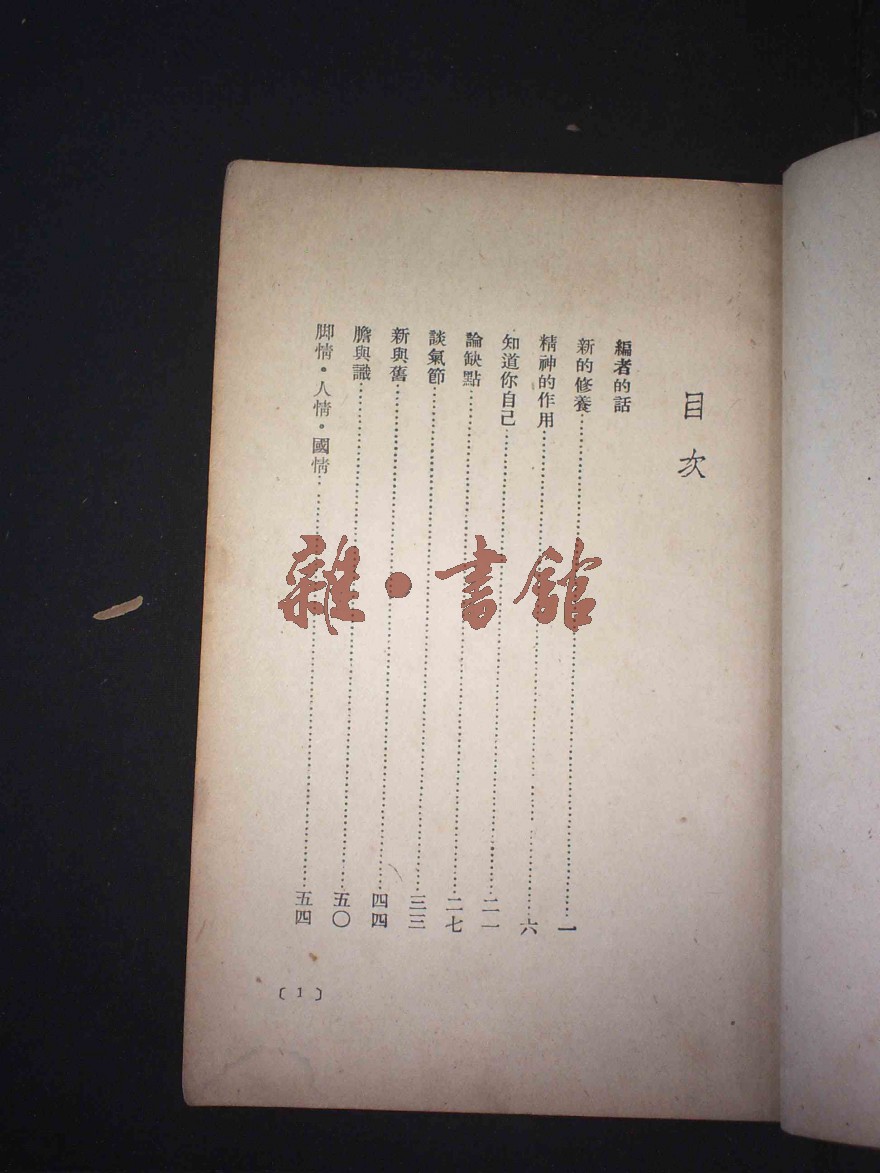 目次
編者的話
新的修養……一
精神的作用……六
知道你自己……二一
論缺點……二七
談氣節……三三
新與舊……四四
膽與識……五〇
脚情・人情・國情……五四
〔1〕
雜・書館